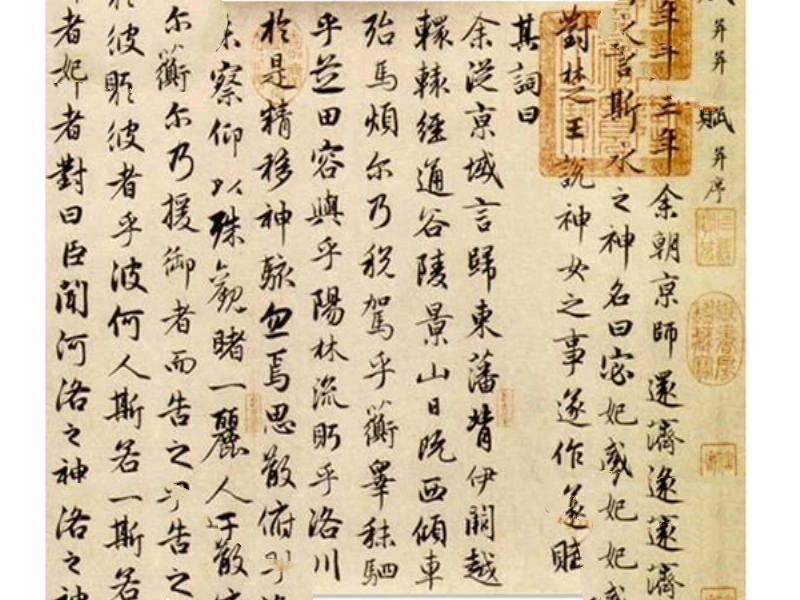 并并賦并序
年三年余朝京師還濟遂還濟
之言斯水之神名曰宓妃感妃妃感
對楚王說神女之事遂作遂賦
其詞曰
余從京域言歸東藩背伊闕越
轘轅經通谷陵景山日既西傾車
殆馬煩尔乃稅駕乎蘅皋秣駟
乎芝田容與乎陽林流眄乎洛川
於是精移神駭忽焉思散俯
未察仰以殊觀睹一麗人于散
尔蘅尔乃援御者而告之告之
於彼彼者乎彼何人斯若一斯若
者妃者對曰臣聞河洛之神洛之神